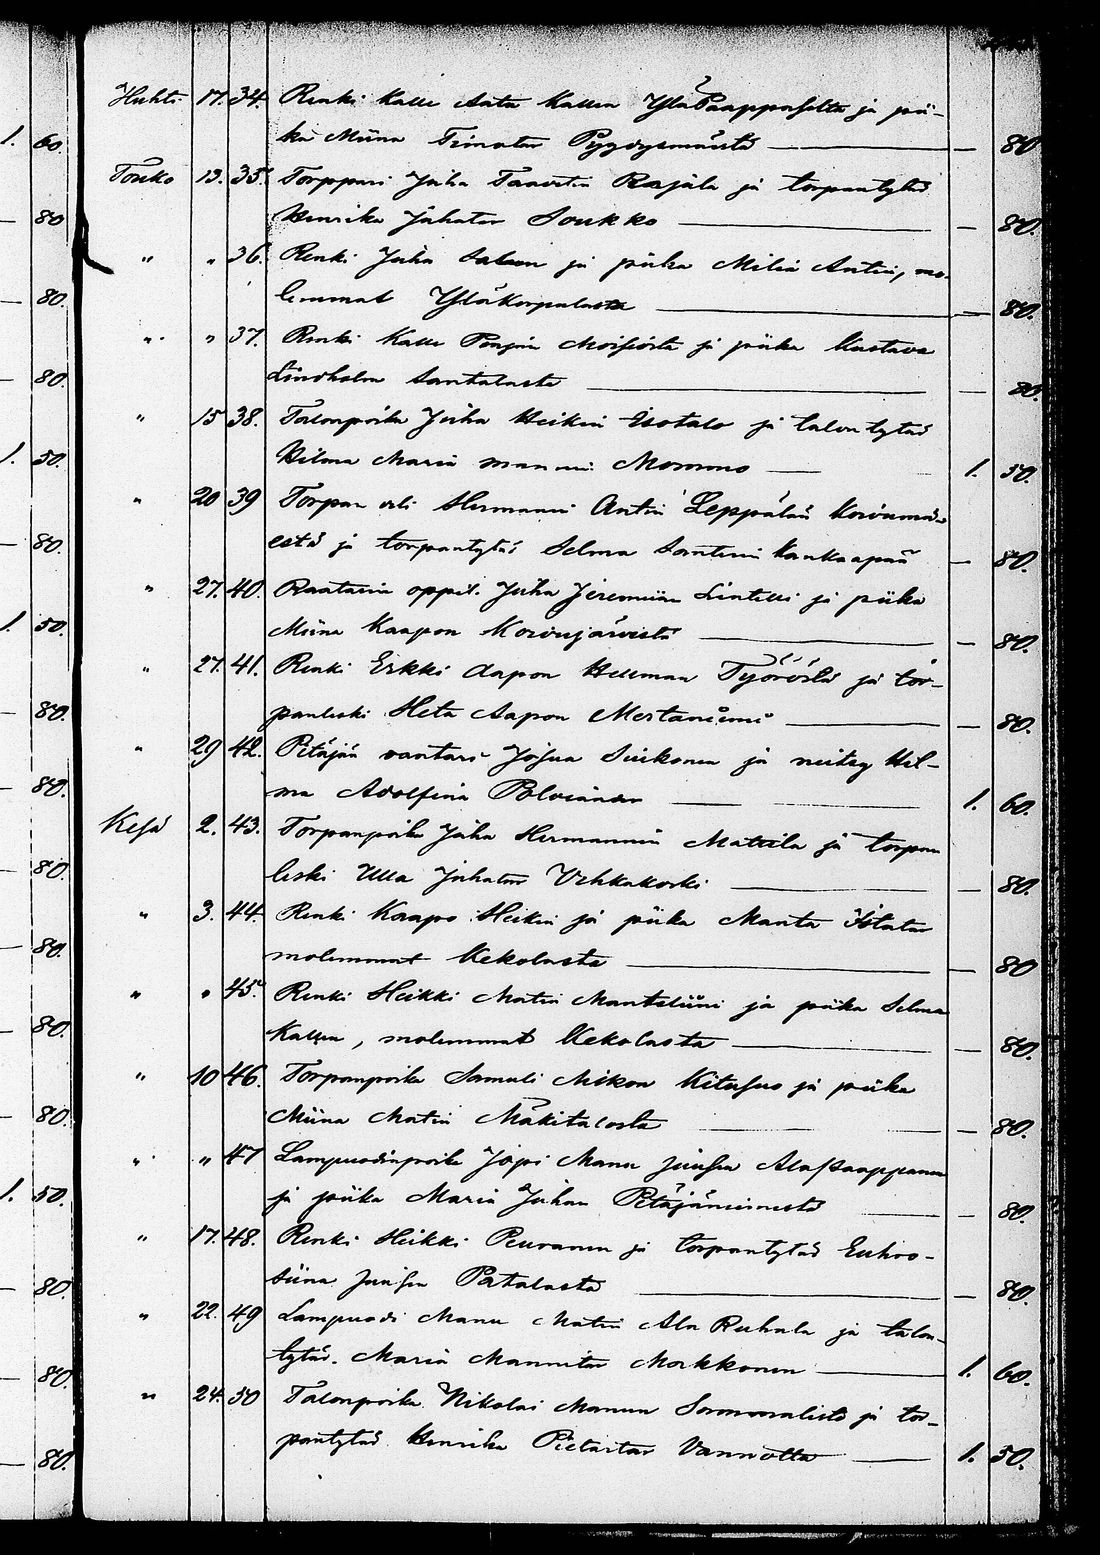 Huhti 17. 34. Renki Kalle Antu Kallen YläPaappaselta ja pii-
1. 60. ka Miina Timatar Pyydysmäistä — 80
Touko 13. 35. Torppari Juha Taavetin Rajala ja torpantytär
80 Henrika Juhatar Soukko — 80.
" " 36. Renki Juha Salun ja piika Milia Antin, mo-
80. lemmat Yläkorpulasta — 80.
" " 37. Renki Kalle Moisiosta ja piika Kustava
80. Lindholm Santalasta — 80.
" 15 38. Talonpoika Juha Heikin Isotalo ja talontytär
1. 50. Hilma Maria Mannu Mommo — 1. 50.
" 20 39 Torpan veli Hermanni Antin Leppälä Korvamä-
80. estä ja torpantytär Selma Santeri Kankaapää — 80.
" 27. 40. Raatarin oppil. Juha Jeremian Lintelli ja piika
1. 50. Miina Kaapon Korvujärvistä — 80.
" 27. 41. Renki Erkki Aapon Hellman Työrölä ja tor-
80. panleski Heta Aapon Mertaniemi — 80.
" 29 42. Pitäjän vantari Josua Siikonen ja neitsy Hel-
80. ma Adolfina Polviander — 1. 60.
Kesä 2. 43. Torpanpoika Juha Hermannin Mattila ja torpan
80. leski Ulla Juhatar Vehkakoski — 80.
" 3. 44. Renki Kaapo Heikin ja piika Manta Iistatar
80. molemmat Kekolasta — 80
" " 45. Renki Heikki Matin Mantsliini ja piika Selma
80. Kallen, molemmat Kekolasta — 80.
" 10 46. Torpanpoika Samuli Mikon Kitusuo ja piika
80. Miina Matin Mäkitalosta — 80.
" " 47 Lampuodinpoika Jopi Manu Juusen AlaPaappanen
1. 50. ja piika Maria Juhan Petäjäniemestä — 80.
" 17. 48. Renki Heikki Peuranen ja torpantytär Eufro-
80. siina Juusen Patalasta — 80.
" 22. 49 Lampuodi Manu Matin Ala Ruhala ja talon-
80. tytär. Maria Mannutar Markkanen — 1. 60.
" 24. 50 Talonpoika Nikolai Manun Sammalisto ja tor-
80. pantytär Henrika Pietartar Vannotta — 1. 50.